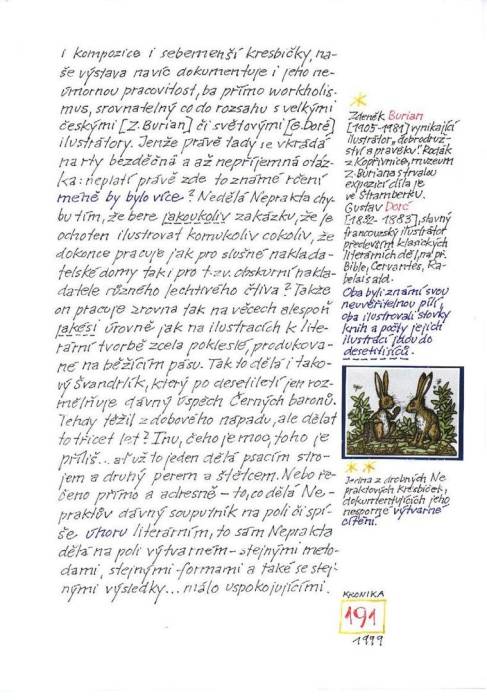 i kompozice i sebemenší kresbičky, na-
še výstava navíc dokumentuje i jeho ne-
úmornou pracovitost, ba přímo workholis-
mus, srovnatelný co do rozsahu s velkými
českými [Z. Burian] či světovými [G. Doré]
ilustrátory. Jenže právě tady se vkrádá
na rty bezděčná a až nepříjemná otáz-
ka: neplatí právě zde to známé rčení
méně by bylo více? Nedělá Neprakta chy-
bu tím, že bere jakoukoliv zakázku, že je
ochoten ilustrovat komukoliv cokoliv, že
dokonce pracuje jak pro slušné naklada-
telské domy tak i pro t.zv. obskurní nakla-
datele různého lechtivého čtiva? Takže
on pracuje zrovna tak na věcech alespoň
jakési úrovně jak na ilustracích k lite-
rární tvorbě zcela pokleslé, produkova-
né na běžícím pásu. Tak to dělá i tako-
vý Švandrlík, který po desetiletí jen roz-
mělňuje dávný úspěch Černých baronů.
Tehdy těžil z dobového nápadu, ale dělat
to třicet let? Inu, čeho je moc, toho je
příliš... ať už to jeden dělá psacím stro-
jem a druhý perem a štětcem. Nebo ře-
čeno přímo a adresně – to, co dělá Ne-
praktův dávný souputník na poli či spí-
še úhoru literárním, to sám Neprakta
dělá na poli výtvarném – stejnými meto-
dami, stejnými formami a také se stej-
nými výsledky... málo uspokojujícími.
Zdeněk Burian
[1905-1981] vynikající
ilustrátor „dobrodruž-
ství a pravěku". Rodák
z Kopřivnice, muzeum
Z. Buriana s trvalou
expozicí díla je
ve Štramberku.
Gustav Doré
[1832-1883], slavný
francouzský ilustrátor
především klasických
literárních děl, na př.
Bible, Cervantes, Ra-
belais atd.
Oba byli známí svou
neuvěřitelnou pílí,
oba ilustrovali stovky
knih a počty jejich
ilustrací jdou do
desetitisíců.
Jedna z drobných Ne-
praktových kresbiček,
dokumentujících jeho
nesporné výtvarné
cítění.
KRONIKA
191
1999